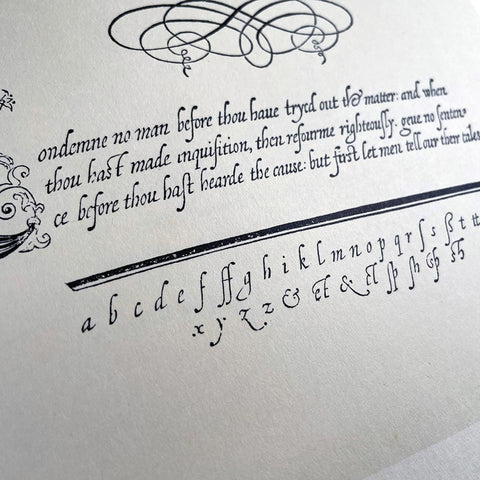 ondemne no man before thou haue tryed out the matter: and when
thou hast made inquisition, then refourme righteously. geue no senten
ce before thou hast hearde the cause: but first let men tell out their tales
a b c d e f ff g h i k l m n o p q r ſ s ß t tt
x y z z & &